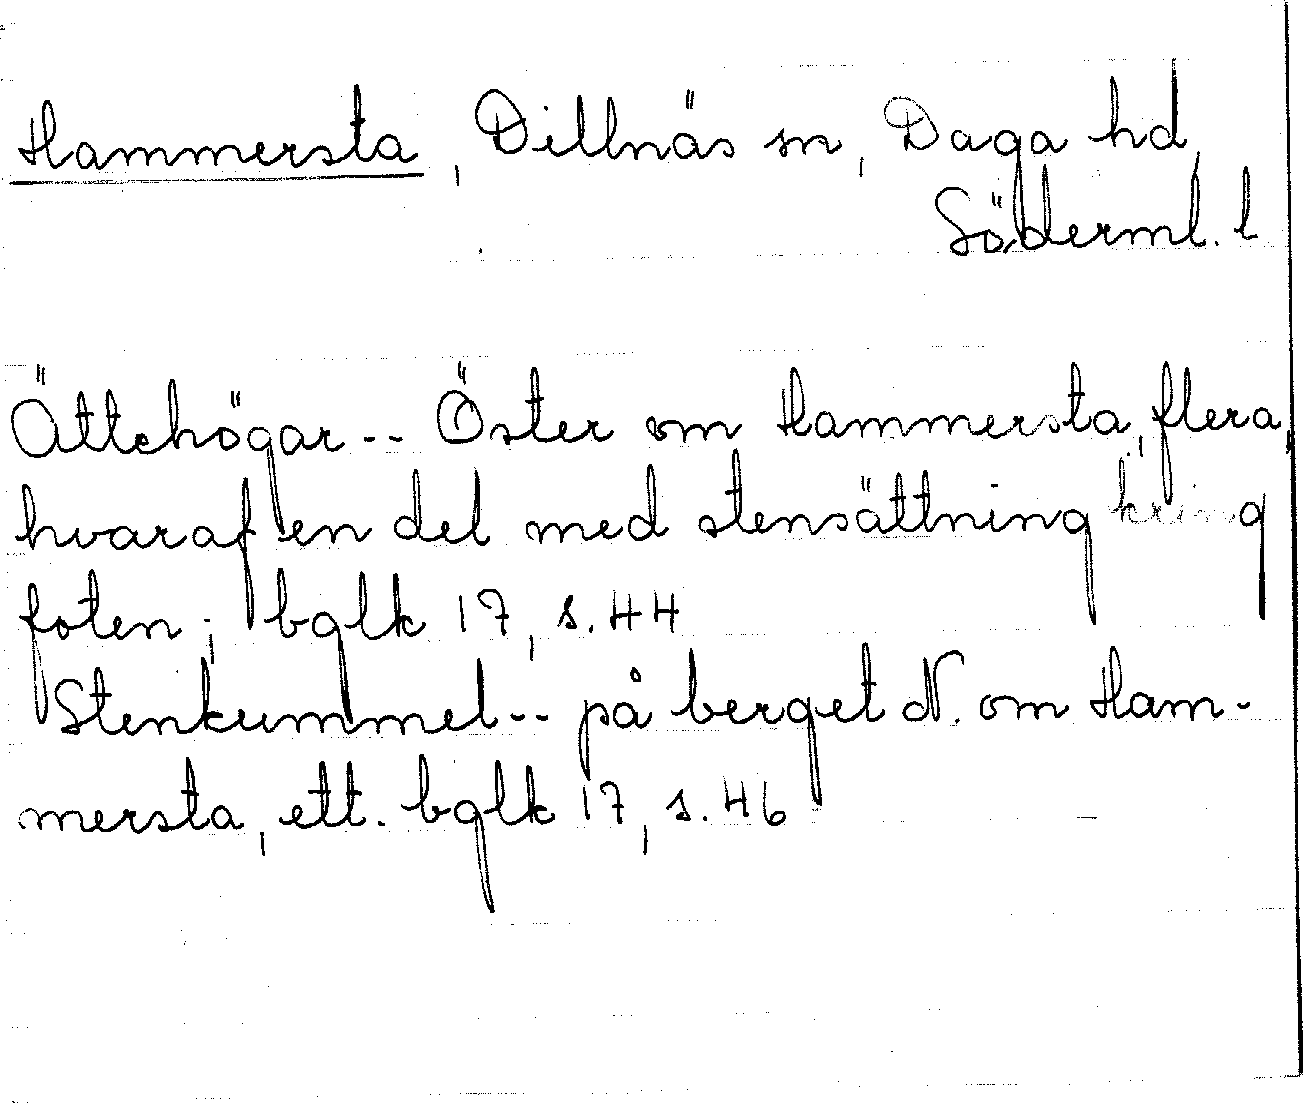 Hammersta, Dillnäs sn, Daga hd,
Söderml. l
Ättehögar -- Öster om Hammersta, flera,
hvaraf en del med stensättning kring
foten; bglk 17, s. 44
Stenkummel -- på berget N. om Ham-
mersta, ett. bglk 17, s. 46